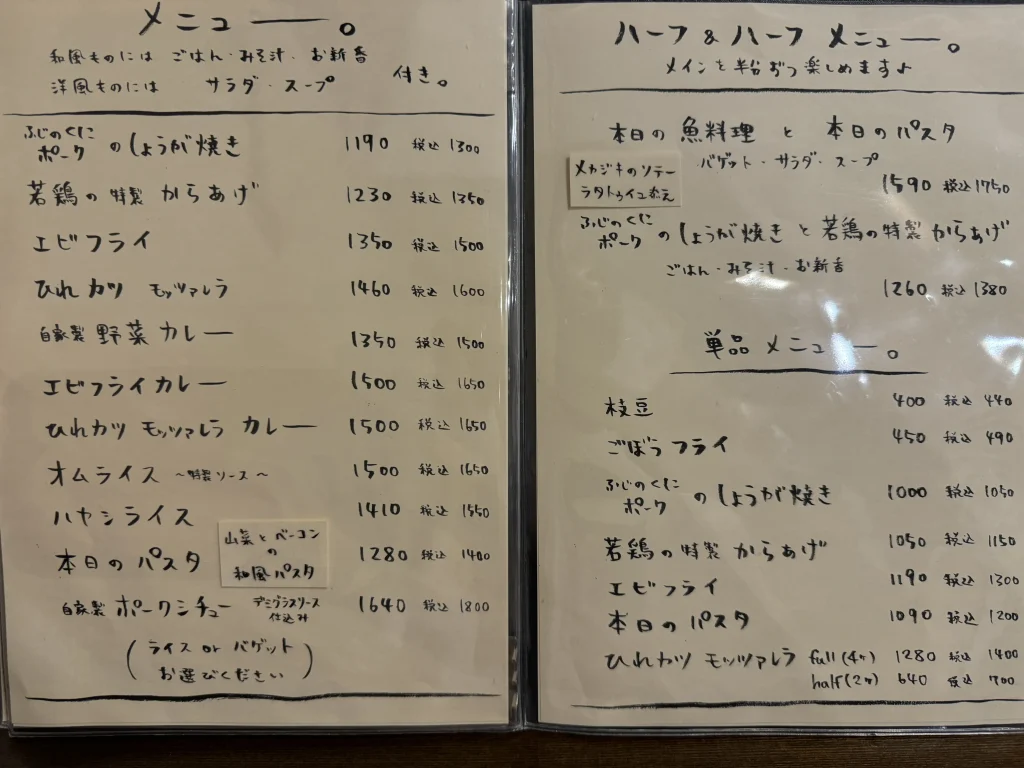 メニュー。
和風ものには ごはん・みそ汁・お新香
洋風ものには サラダ・スープ 付き。
ふじのくに ポーク のしょうが焼き 1190 税込 1300
若鶏の 特製 からあげ 1230 税込 1350
エビフライ 1350 税込 1500
ひれカツ モッツァレラ 1460 税込 1600
自家製 野菜 カレー 1350 税込 1500
エビフライカレー 1500 税込 1650
ひれカツ モッツァレラ カレー 1500 税込 1650
オムライス ～特製ソース～ 1500 税込 1650
ハヤシライス 1410 税込 1550
本日の パスタ 1280 税込 1400
山菜と ベーコン
の
和風パスタ
自家製 ポークシチュー デミグラスソース 仕込み 1640 税込 1800
(ライス or バゲット
お選びください)
ハーフ & ハーフ メニュー。
メインを半分ずつ楽しめます♪
本日の 魚料理 と 本日のパスタ
バゲット・サラダ・スープ
メカジキのソテー
ラタトゥイユ添え
1590 税込 1750
ふじのくに ポーク のしょうが焼きと若鶏の特製からあげ
ごはん・みそ汁・お新香
1260 税込 1380
単品 メニュー。
枝豆 400 税込 440
ごぼう フライ 450 税込 490
ふじのくに ポーク のしょうが焼き 1000 税込 1050
若鶏の特製 からあげ 1050 税込 1150
エビフライ 1190 税込 1300
本日の パスタ 1090 税込 1200
ひれカツ モッツァレラ full(4ヶ) 1280 税込 1400
half(2ヶ) 640 税込 700